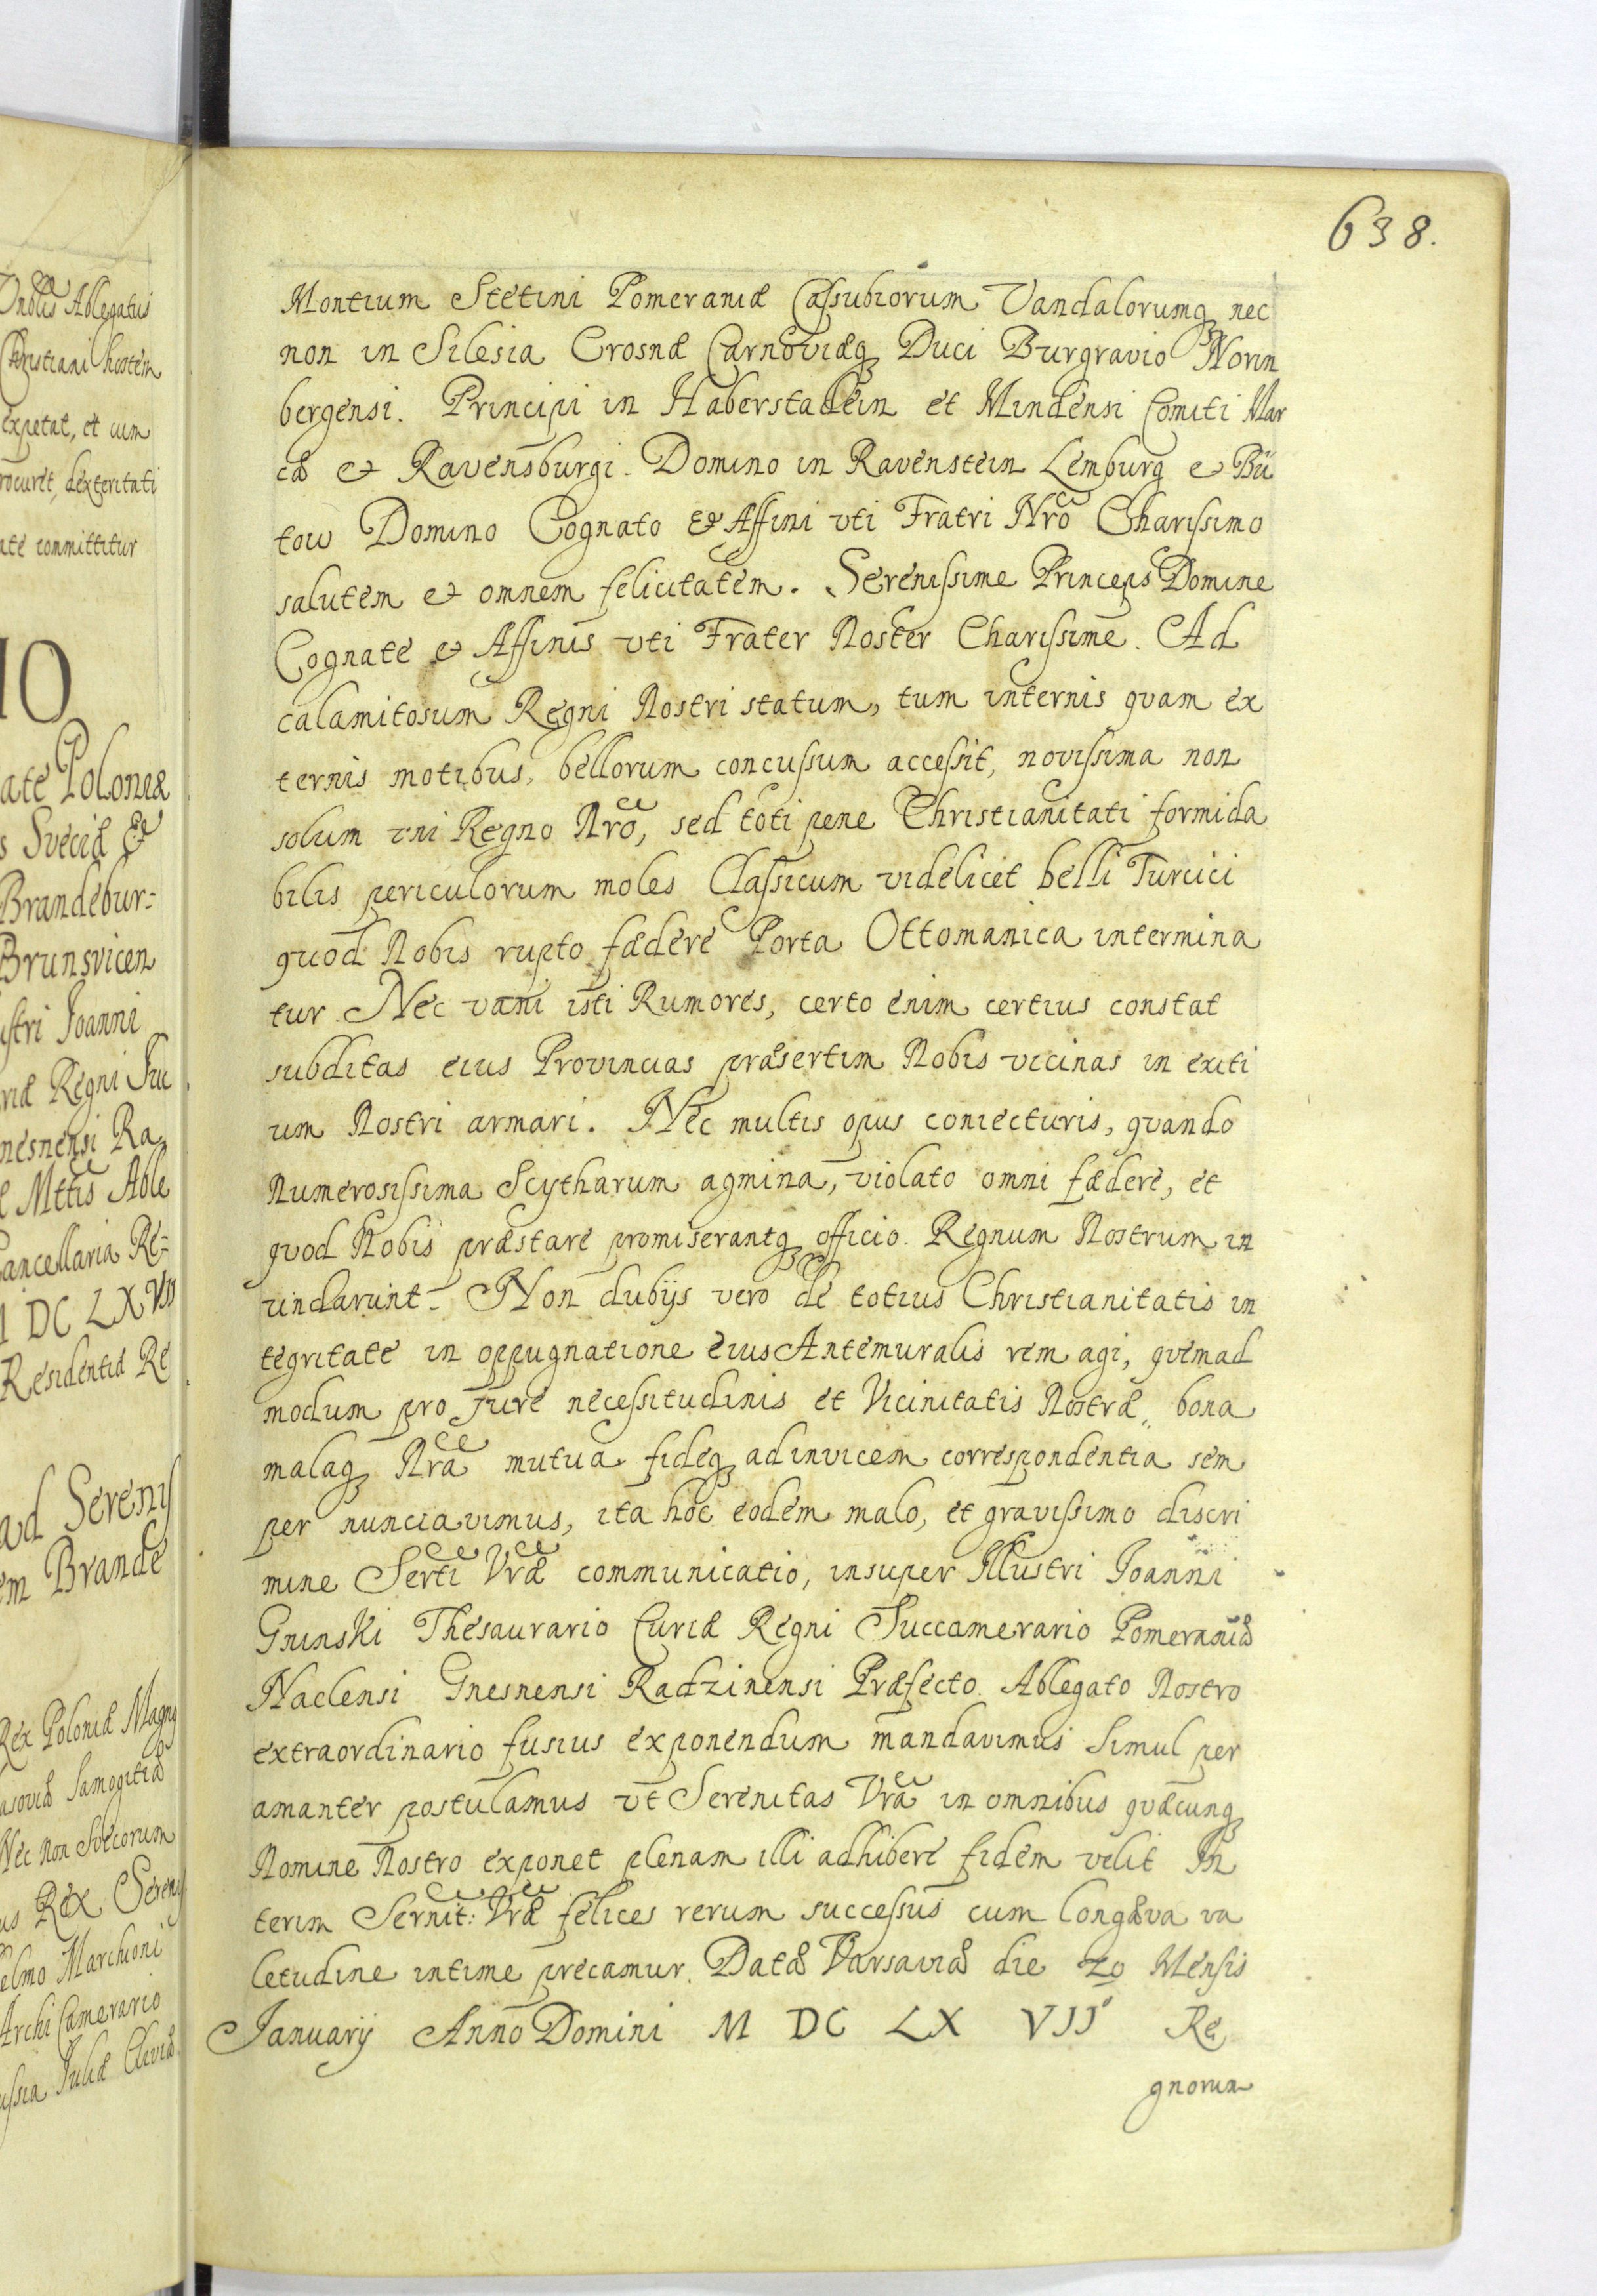 638.
Montium Stetini Pomeraniæ Cassubiorum Vandalorumq nec
non in Silesia Crosnæ Carnoviæq Duci Burgravio Norin
bergensi. Principi in Haberstadein et Mindensi Comiti Mar
cæ et Ravensburgi. Domino in Ravenstein Lemburg et Bü
tow Domino Cognato et Affini vti Fratri Nro Charissimo
salutem et omnem felicitatem. Serenissime Princeps Domine
Cognate et Affinis vti Frater Noster Charissime. Ad
calamitosum Regni Nostri statum, tum internis quam ex
ternis motibus, bellorum concussum accessit, novissima non
solum vni Regno Nro, sed toti pene Christianitati formida
bilis periculorum moles Classicum videlicet belli Turcici
quod Nobis rupto fædere Porta Ottomanica intermina
tur. Nec vani isti Rumores, certo enim certius constat
subditas eius Provincias præsertim Nobis vicinas in exiti
um Nostri armari. Nec multis opus coniecturis, quando
Numerosissima Scytharum agmina, violato omni fædere, et
quod Nobis præstare promiserantq officio. Regnum Nostrum in
undarunt. Non dubijs vero de totius Christianitatis in
tegritate in oppugnatione eius Antemuralis rem agi, quemad
modum pro Jure necessitudinis et Vicinitatis Nostræ, bona
malaq Nra mutua fideq adinvicem correspondentia sem
per nunciavimus, ita hoc eodem malo, et gravissimo discri
mine Serti Vræ communicatio, insuper Illustri Joanni
Gninski Thesaurario Curiæ Regni Succamerario Pomeraniæ
Naclensi Gnesnensi Radzinensi Præfecto. Ablegato Nostro
extraordinario fusius exponendum mandavimus Simul per
amanter postulamus vt Serenitas Vra in omnibus quæcunq
Nomine Nostro exponet plenam illi adhibere fidem velit In
terim Sernit: Vræ felices rerum successus cum longæva va
letudine intime precamur. Datæ Varsaviæ die 20 Mensis
Januarij Anno Domini M DC LX VII Re
gnorum